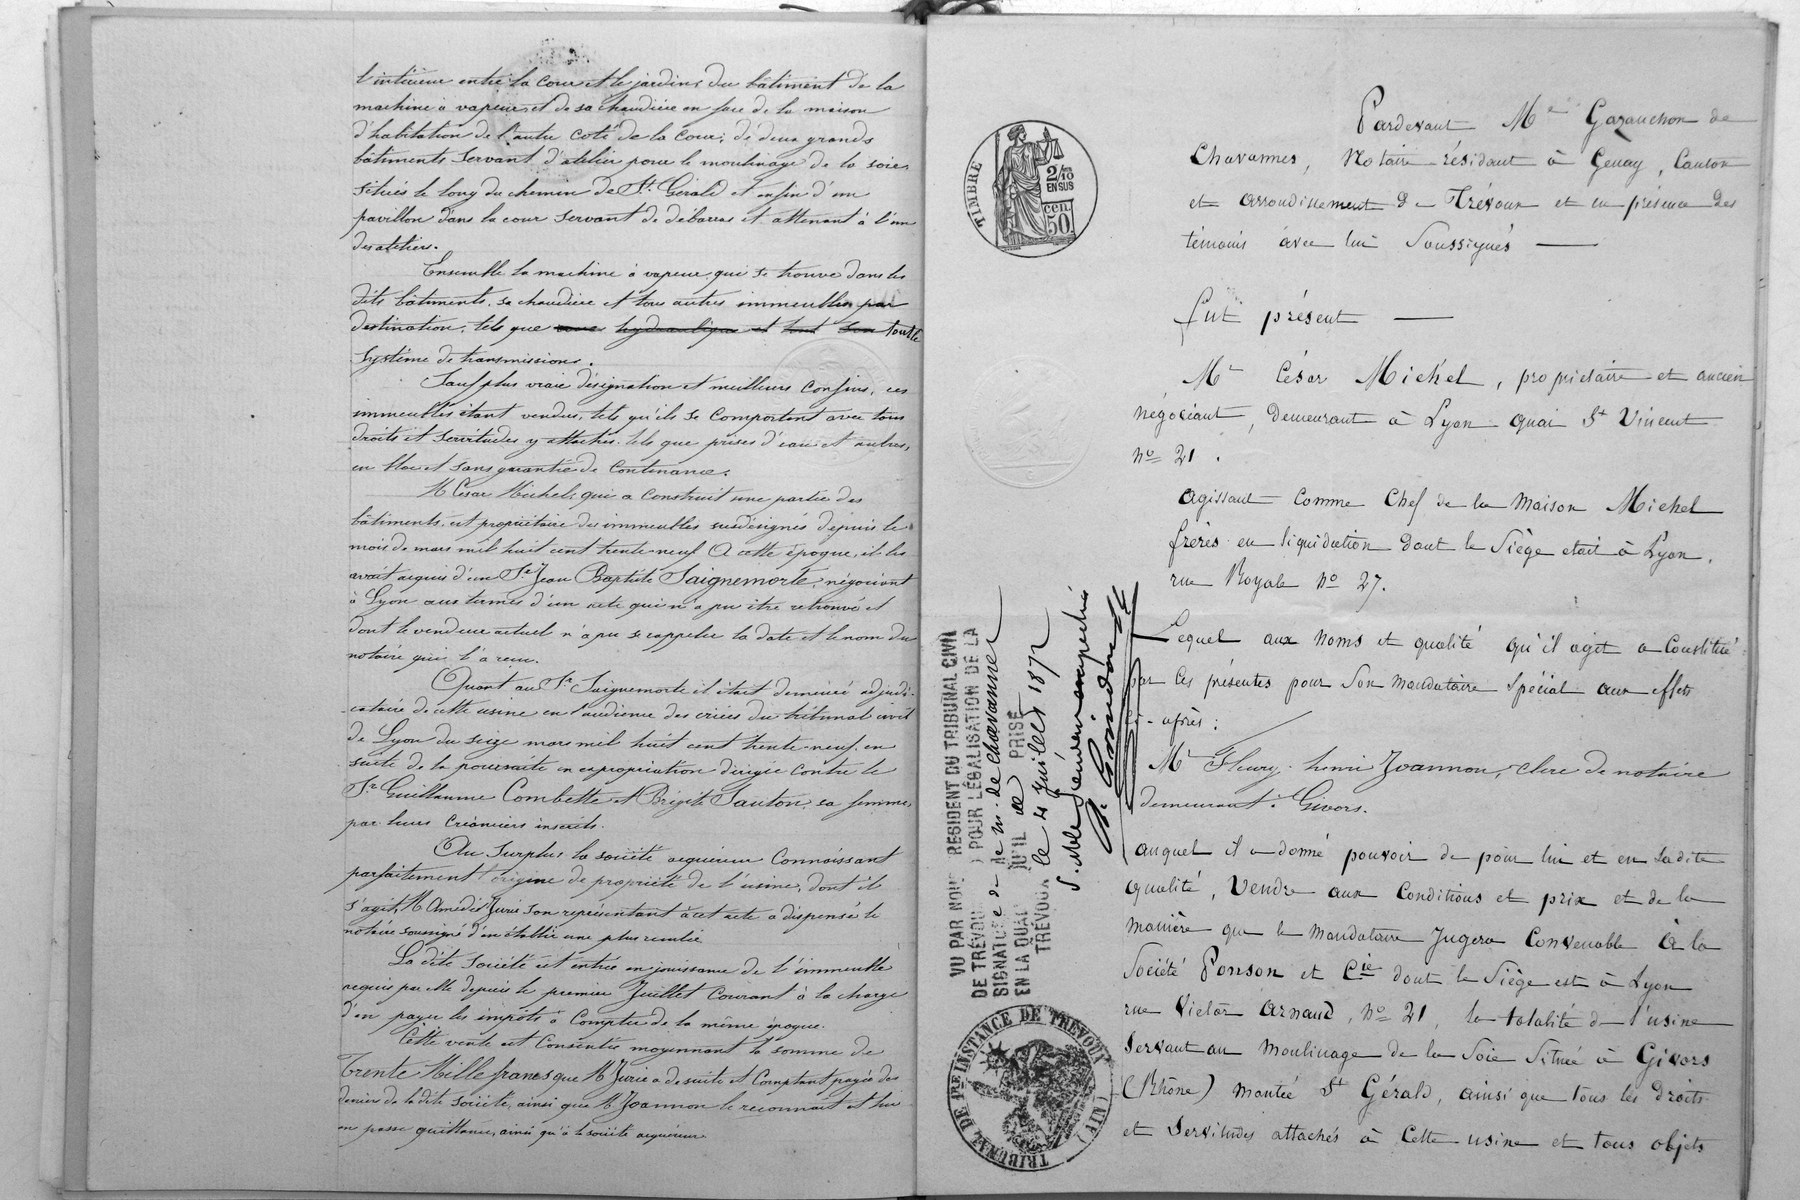 l'intérieur entre la cour et le jardin, du bâtiment de la
machine à vapeur et de sa chaudière en face de la maison
d'habitation de l'autre coté de la cour; de deux grands
bâtiments servant d'atelier pour le moulinage de la soie,
situés le long du chemin de St. Gérald et enfin d'un
pavillon dans la cour servant de débarras et attenant à l'un
des ateliers.
Ensemble la machine à vapeur qui se trouve dans les
dits bâtiments, sa chaudière et tous autres immeubles par
destination, tels que roues hydrauliques et tout son tout le
système de transmissions.
Sauf plus vraie désignation et meilleurs confins, ces
immeubles étant vendus, tels qu'ils se comportent avec tous
droits et servitudes y attachés tels que prises d'eau et autres,
en bloc et sans garantie de contenance.
M César Michel, qui a construit une partie des
bâtiments, est propriétaire des immeubles susdésignés depuis le
mois de mars mil huit cent trente-neuf. A cette époque, il les
avait acquis d'un Sr. Jean Baptiste Saignemorte, négociant
à Lyon aux termes d'un acte qui n'a pu être retrouvé et
dont le vendeur actuel n'a pu se rappeler la date et le nom du
notaire qui l'a reçu.
Quant au Sr. Saignemorte il était demeuré adjudi-
-cataire de cette usine en l'audience des criées du tribunal civil
de Lyon du seize mars mil huit cent trente-neuf, en
suite de la poursuite en expropriation dirigée contre le
Sr. Guillaume Combette et Brigitte Santon, sa femme,
par leurs créanciers inscrits.
Au surplus la société acquéreur connaissant
parfaitement l'origine de propriété de l'usine, dont il
s'agit, M Amédée Jurie son représentant à cet acte a dispensé le
notaire soussigné d'en établir une plus
La dite Société est entrée en jouissance de l'immeuble
acquis par elle depuis le premier Juillet courant à la charge
d'en payer les impôts à compter de la même époque.
Cette vente est consentie moyennant la somme de
Trente Mille francs que M Jurie a de suite et comptant payée des
deniers de la dite société, ainsi que M Joannon le reconnaît et lui
en passe quittance, ainsi qu'à la société acquéreur.
TIMBRE
2/10
EN SUS
cen.
50
Pardevant Me Garanchon de
Chavannes, Notaire résidant à Genay, Canton
et arrondissement de Trévoux et en présence des
témoins avec lui soussignés
fut présent
Mr César Michel, propriétaire et ancien
négociant, demeurant à Lyon quai St Vincent
No 21.
agissant comme Chef de la Maison Michel
frères en liquidation dont le siège etait à Lyon,
rue Royale No 27.
Lequel aux noms et qualité qu'il agit a constitué
par ces présentes pour son mandataire spécial aux effets
ci-après:
Mr Fleury-henri Joannon, clerc de notaire
demeurant à Givors.
auquel il a donné pouvoir de pour lui et en sadite
qualité, Vendre aux conditions et prix et de la
manière que le mandataire Jugera convenable à la
Société Ponson et Cie dont le siège est à Lyon
rue Victor Arnaud, No 21, la totalité de l'usine
servant au moulinage de la soie située à Givors
(Rhône) montée St Gérald, ainsi que tous les droits
et servitudes attachés à cette usine et tous objets
VU PAR NOUS PRESIDENT DU TRIBUNAL CIVIL
DE TRÉVOUX POUR LÉGALISATION DE LA
SIGNATURE de Me M. de Chavannes
EN LA QUALITÉ QU'IL A PRISE
TRÉVOUX le 4 Juillet 1872
TRIBUNAL DE 1RE INSTANCE DE TRÉVOUX (AIN)